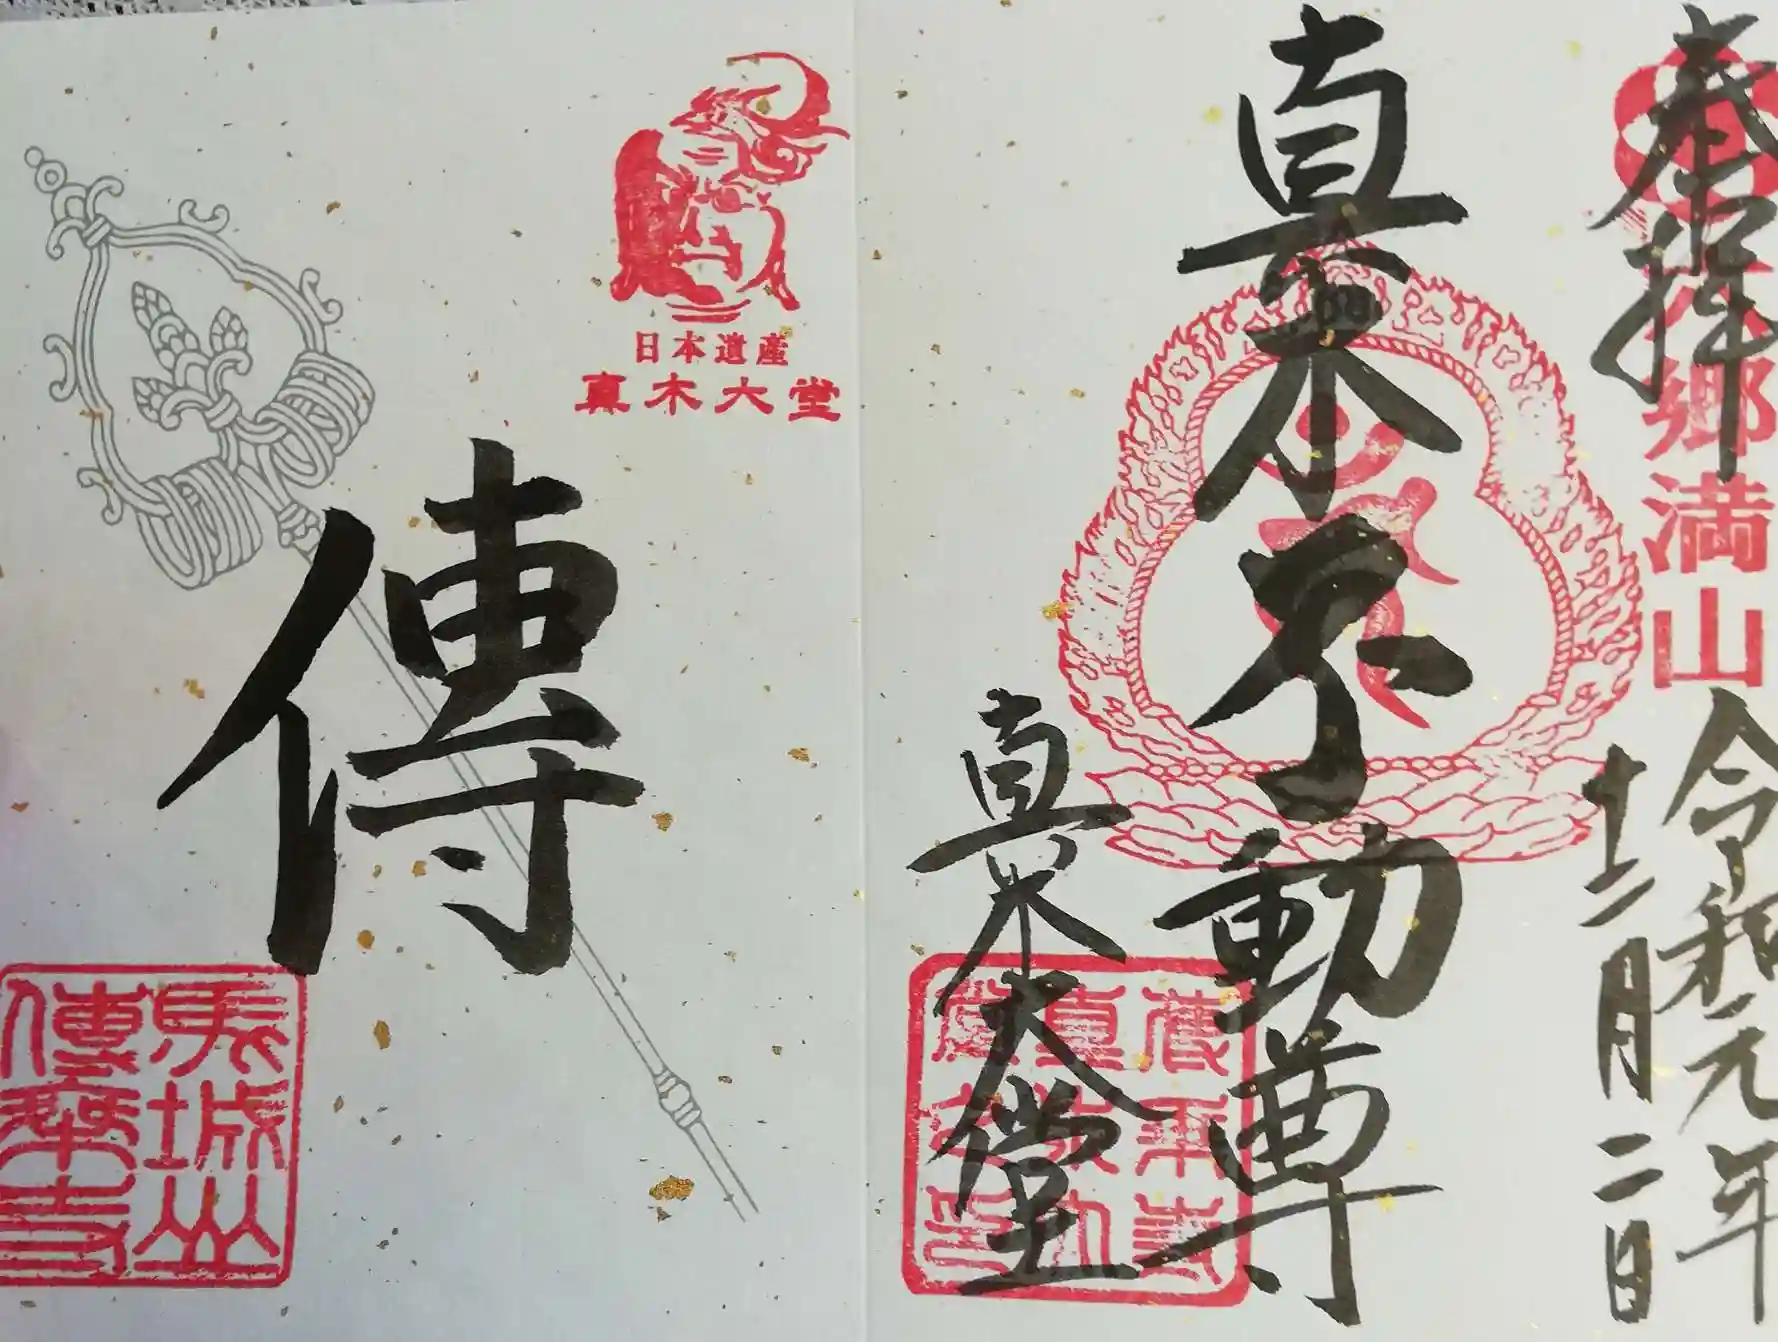 奉拝
六郷満山
令和元年
十二月二日
真木不動尊
真木大堂
日本遺産
真木大堂
傳
馬城山
傳乗寺